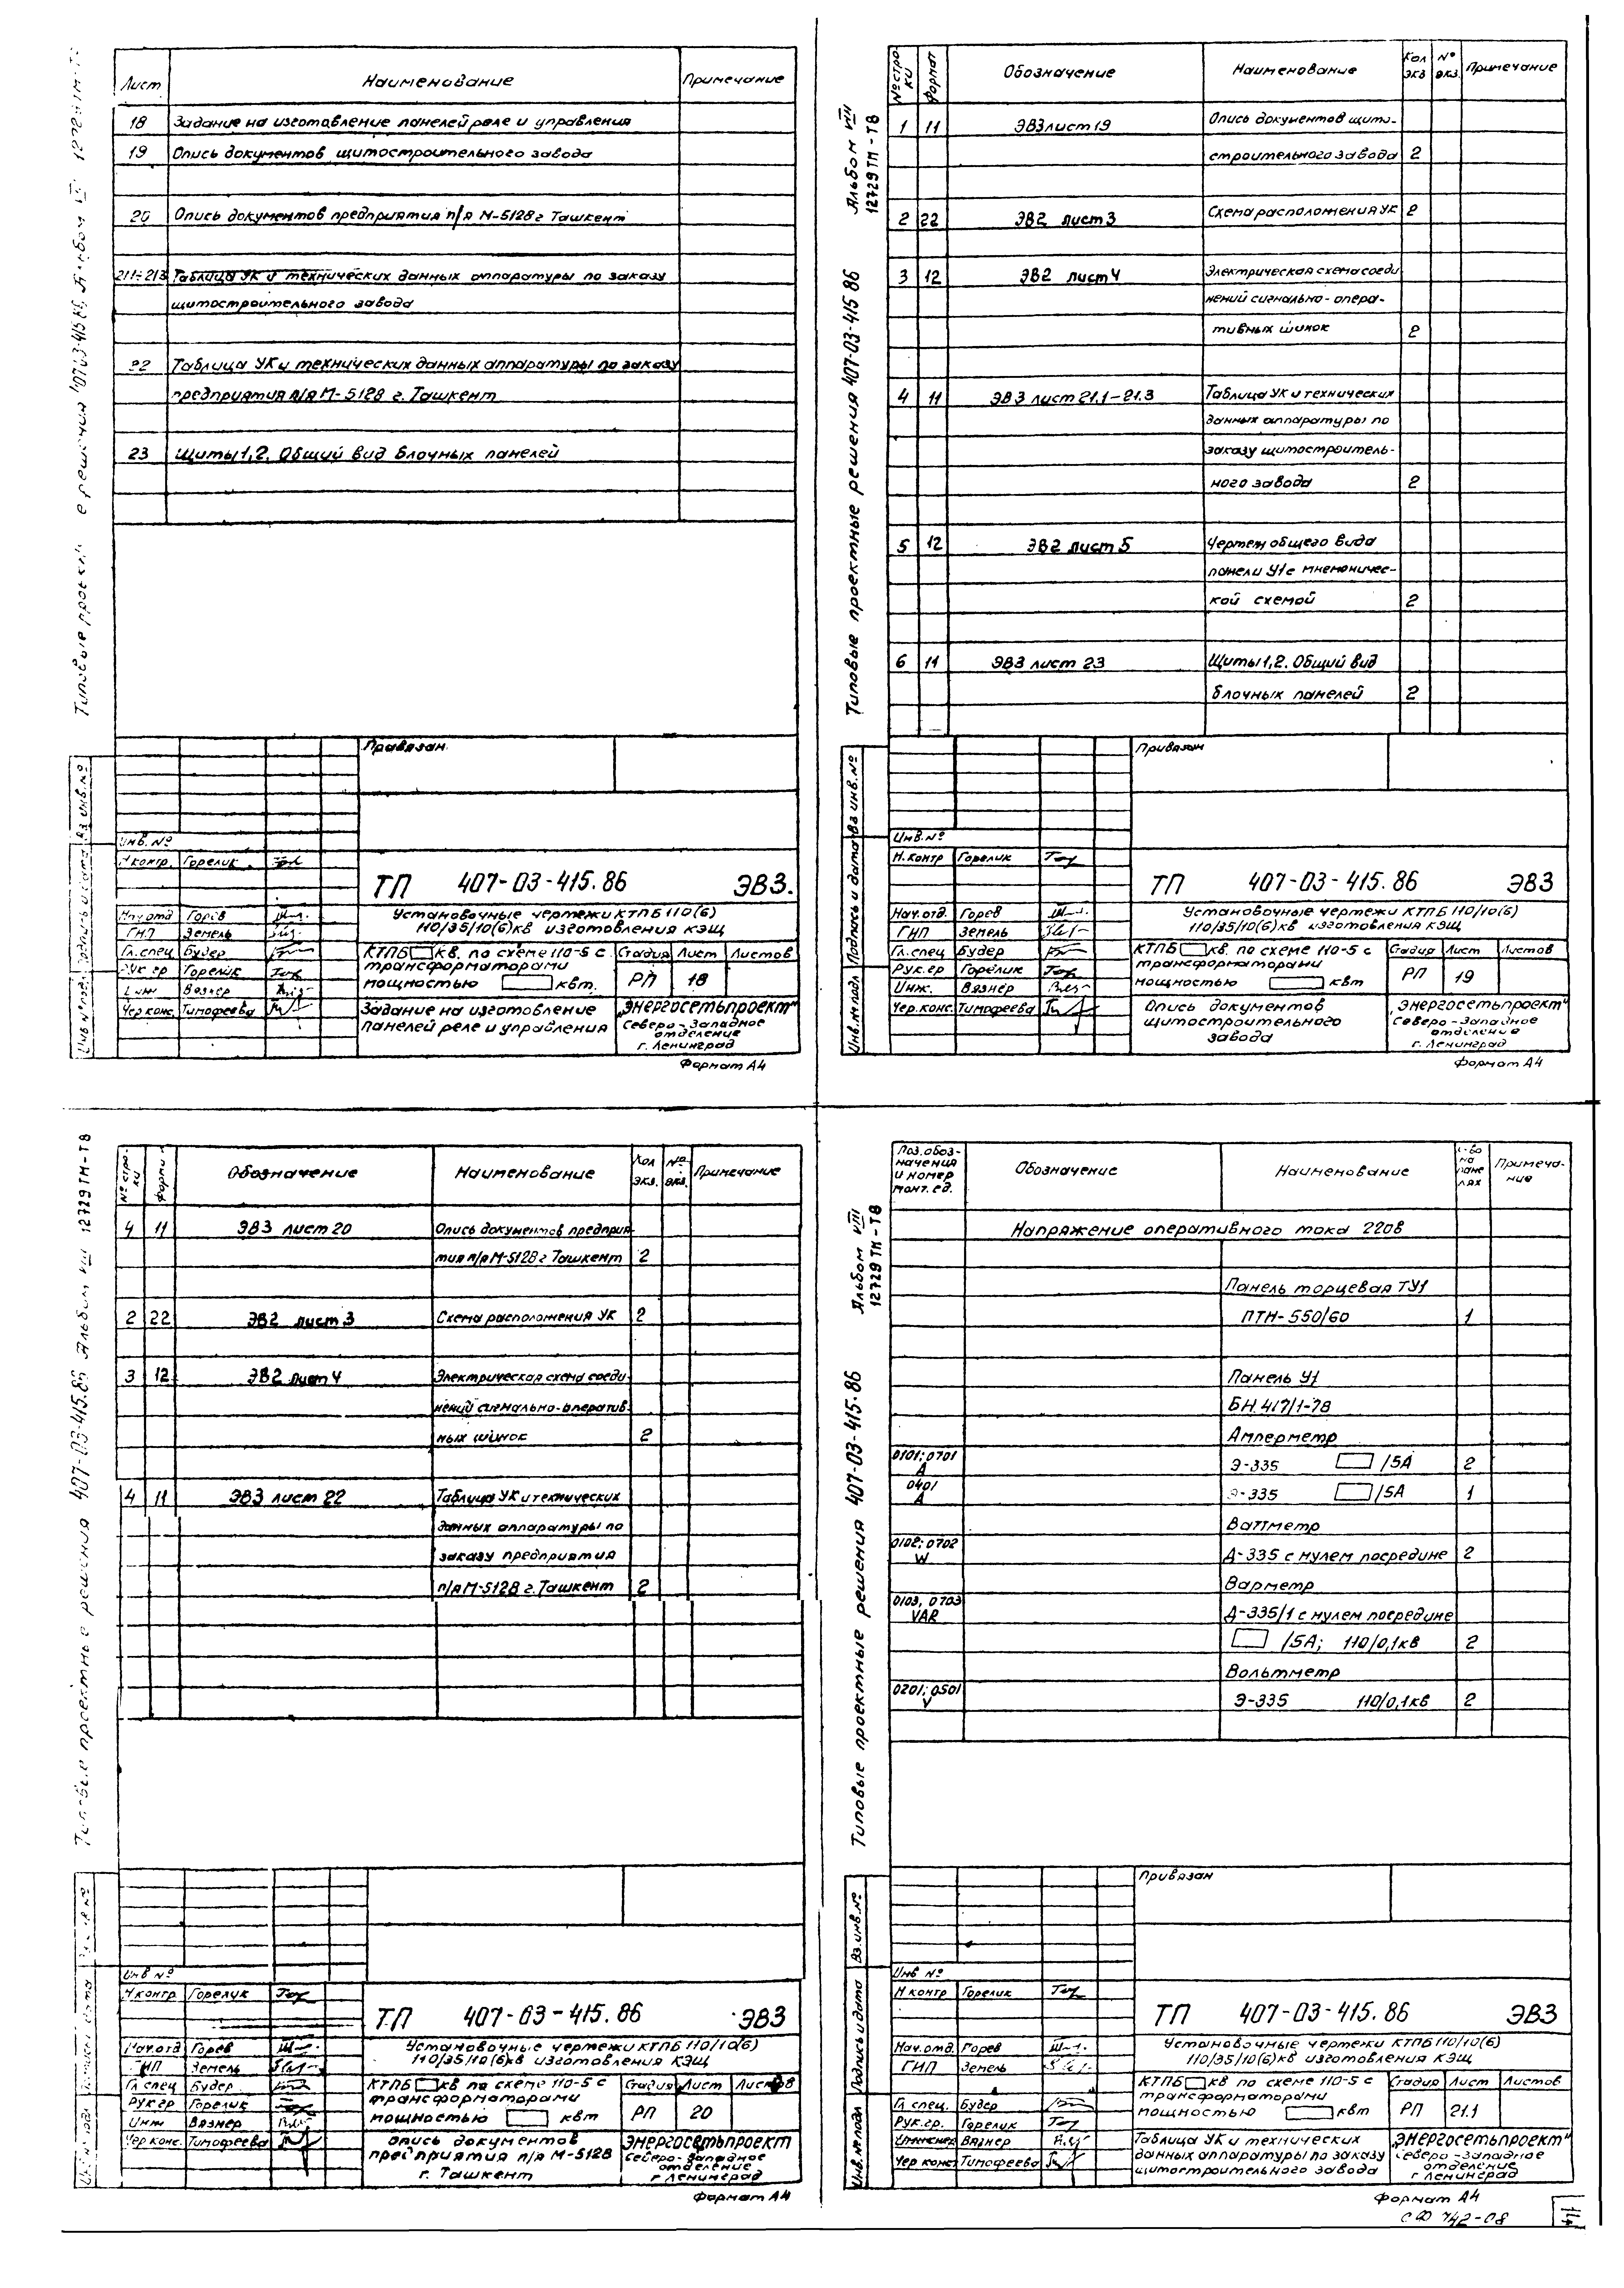 Лист Наименование Примечание
18 Задание на изготовление панелей реле и управления
19 Опись документов щитостроительного завода
20 Опись документов предприятия п/я М-5128 г Ташкент
21.1÷21.3 Таблица УК и технических данных аппаратуры по заказу
щитостроительного завода
22 Таблица УК и технических данных аппаратуры по заказу
предприятия п/я М-5128 г. Ташкент
23 Щиты 1,2. Общий вид блочных панелей
Привязан
Инв. №
Н контр. Горелик
ТП 407-03-415.86 ЭВ3.
Нач.отд Горев
ГИП Земель
Гл.спец Будер
Рук гр Горелик
Инж Вязнер
Чер конс. Тимофеева
Установочные чертежи КТПБ 110(6)
110/35/10(6)кв изготовления КЭЩ
КТПБ кв. по схеме 110-5 с
трансформаторами
мощностью квт.
Стадия Лист Листов
РП 18
Задание на изготовление
панелей реле и управления
„Энергосетьпроект"
Северо-Западное
отделение
г. Ленинград
Формат А4
Типовые проектные решения 407-03-415 86
Альбом VIII
12729 ТМ-Т8
№ строки Формат Обозначение Наименование Кол экз № экз. Примечание
1 11 ЭВ3 лист 19 Опись документов щито-
строительного завода 2
2 22 ЭВ2 лист 3 Схема расположения УК 2
3 12 ЭВ2 лист 4 Электрическая схема соеди
нений сигнально-опера-
тивных шинок 2
4 11 ЭВ3 лист 21.1-21.3 Таблица УК и технических
данных аппаратуры по
заказу щитостроитель-
ного завода 2
5 12 ЭВ2 лист 5 Чертеж общего вида
панели У1 с мнемоничес-
кой схемой 2
6 11 ЭВ3 лист 23 Щиты 1,2. Общий вид
блочных панелей 2
Привязан
Инв. №
Инв. № подл Подпись и дата Вз инв. №
Н. контр Горелик
ТП 407-03-415.86 ЭВ3
Нач.отд. Горев
ГИП Земель
Гл.спец Будер
Рук.гр Горелик
Инж. Вязнер
Чер.конс. Тимофеева
Установочные чертежи КТПБ 110/10(6)
110/35/10(6)кв изготовления КЭЩ
КТПБ кв. по схеме 110-5 с
трансформаторами
мощностью квт
Стадия Лист Листов
РП 19
Опись документов
щитостроительного
завода
„Энергосетьпроект"
Северо-Западное
отделение
г. Ленинград
Формат А4
407-03-415.86 Альбом VIII 12729 ТМ-Т8
№ строки Обозначение Наименование Кол экз. № экз. Примечание
4 11 ЭВ3 лист 20 Опись документов предприя-
тия п/я М-5128 г Ташкент 2
2 22 ЭВ2 лист 3 Схема расположения УК 2
3 12 ЭВ2 лист 4 Электрическая схема соеди
нений сигнально-оператив-
ных шинок 2
4 11 ЭВ3 лист 22 Таблица УК и технических
данных аппаратуры по
заказу предприятия
п/я М-5128 г. Ташкент 2
Инв №
Н контр Горелик
ТП 407-03-415.86 ЭВ3
Нач.отд Горев
ГИП Земель
Гл спец Будер
Рук гр Горелик
Инж Вязнер
Чер конс. Тимофеева
Установочные чертежи КТПБ 110/10(6)
110/35/10(6)кв изготовления КЭЩ
КТПБ кв по схеме 110-5 с
трансформаторами
мощностью квт
Стадия Лист Листов
РП 20
опись документов
предприятия п/я М-5128
г. Ташкент
Энергосетьпроект
Северо-Западное
отделение
г Ленинград
Формат А4
Типовые проектные решения 407-03-415.86
Альбом VIII
12729 ТМ-Т8
Поз.обоз-
начения
и номер
монт. ед. Обозначение Наименование К-во на пане лях Примеча-
ние
Напряжение оперативного тока 220в
Панель торцевая ТУ1
ПТН-550/60 1
Панель У1
БН 417/1-78
Амперметр
0101; 0701 А Э-335 /5А 2
0401 А Э-335 /5А 1
Ваттметр
0102; 0702 W Д-335 с нулем посредине 2
Варметр
0103, 0703 VAR Д-335/1 с нулем посредине
/5А; 110/0,1кв 2
Вольтметр
0201; 0501 V Э-335 110/0,1кв 2
Привязан
Инв №
Инв. № подл Подпись и дата Вз. инв. №
Н контр Горелик
ТП 407-03-415.86 ЭВ3
Нач.отд. Горев
ГИП Земель
Гл спец. Будер
Рук.гр. Горелик
Вязнер
Чер конс Тимофеева
Установочные чертежи КТПБ 110/10(6)
110/35/10(6)кв изготовления КЭЩ
КТПБ кв. по схеме 110-5 с
трансформаторами
мощностью квт
Стадия Лист Листов
РП 21.1
Таблица УК и технических
данных аппаратуры по заказу
щитостроительного завода
„Энергосетьпроект"
Северо-Западное
отделение
г Ленинград
Формат А4
СФ 742-08